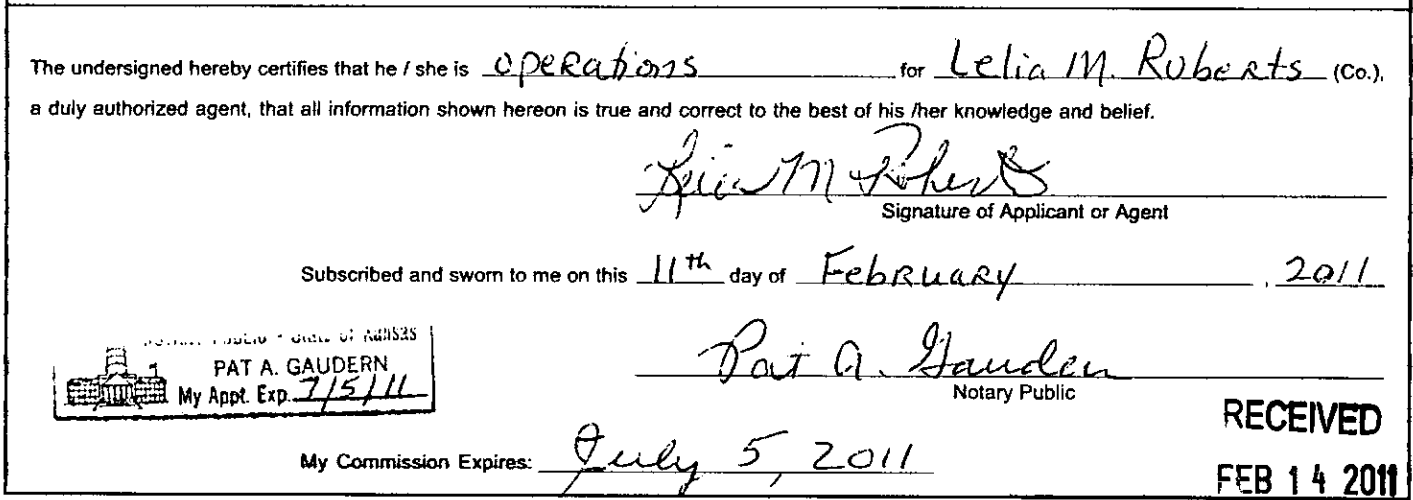 The undersigned hereby certifies that he / she is operations for Lelia M. Roberts (Co.),
a duly authorized agent, that all information shown hereon is true and correct to the best of his /her knowledge and belief.
Lelia M Roberts
Signature of Applicant or Agent
Subscribed and sworn to me on this 11th day of February , 2011
State of Kansas
PAT A. GAUDERN
My Appt. Exp. 7/5/11
Pat A. Gaudern
Notary Public
RECEIVED
My Commission Expires: July 5, 2011
FEB 14 2011